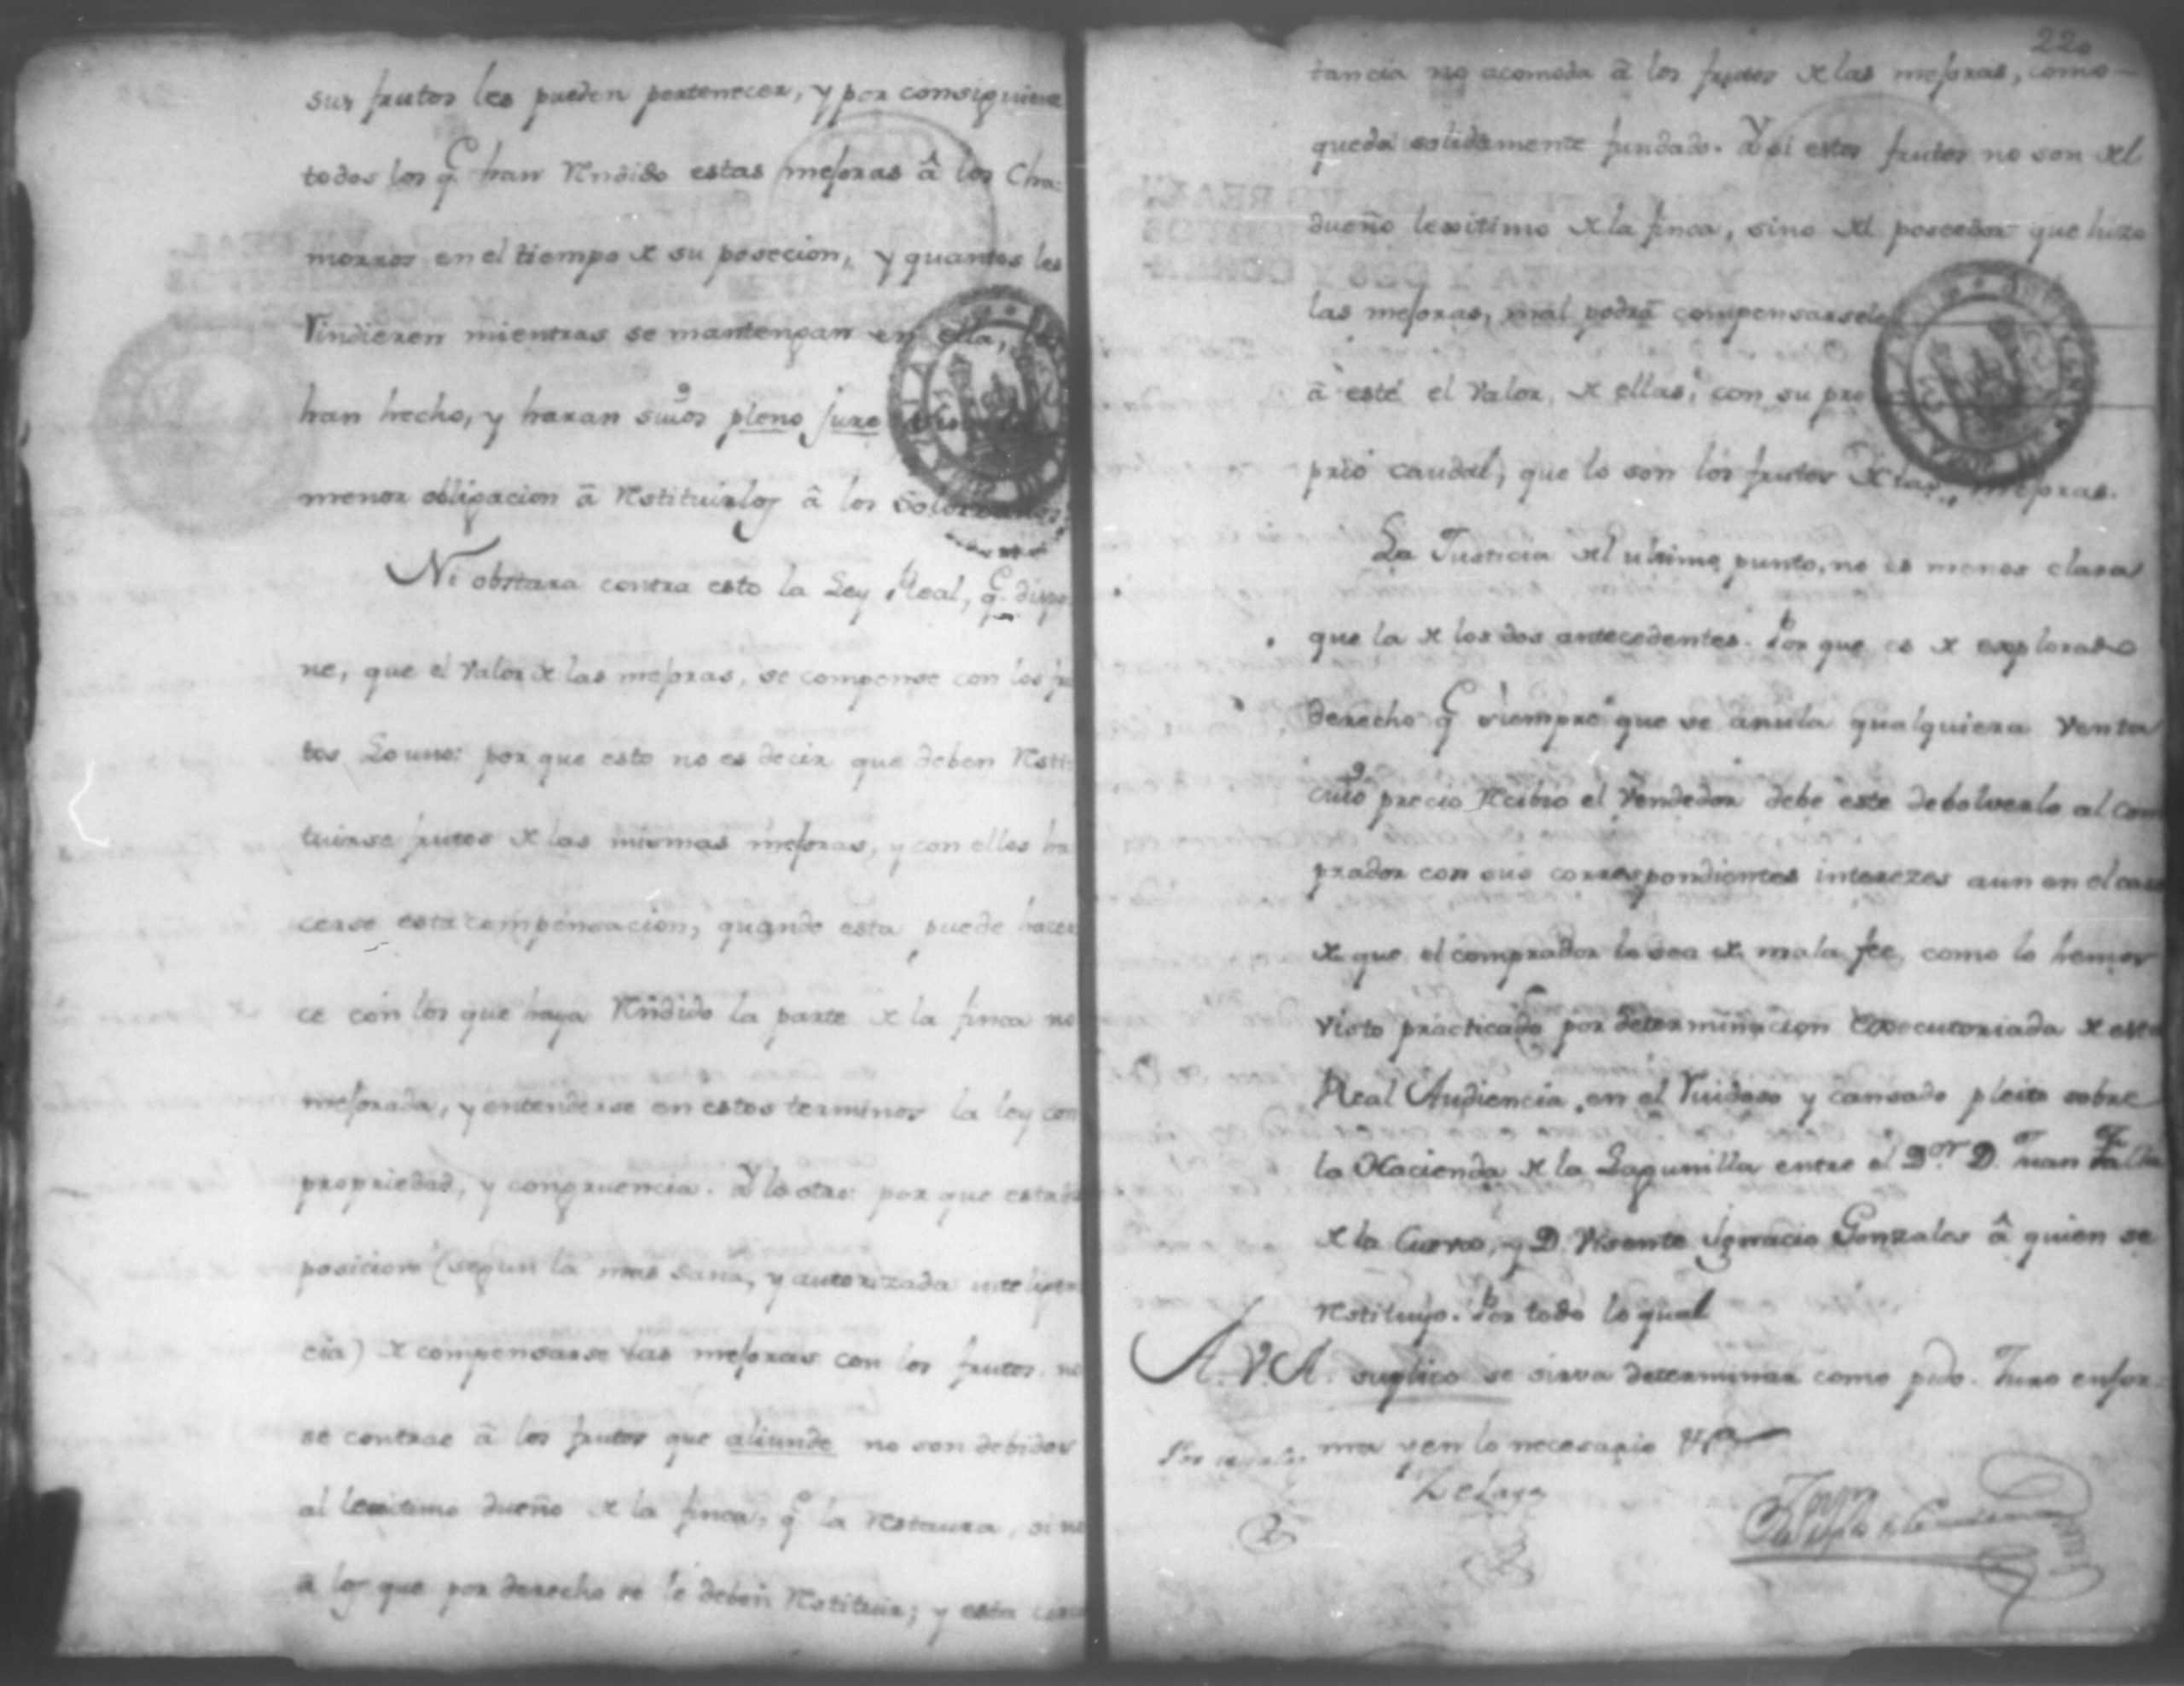 sus frutos les pueden pertenecer, y por consiguiente
todos los q.e han Rendido estas mejoras â los Cha-
morros en el tiempo de su posecion, y quantos les
Rindieren mientras se mantengan en ella, los
han hecho, y haran suios pleno jure
menor obligacion â Restituirlos â los Solorzanos.
Ni obstara contra esto la Ley Real, q.e dispo
ne, que el Valor de las mejoras, se compense con los fru
tos Lo uno: por que esto no es decir que deben Resti
tuirse frutos de las mismas mejoras, y con ellos ha
cerse esta compensacion, quando esta puede hacer
ce con los que haya Rendido la parte de la finca no
mejorada, y entenderse en estos terminos la ley con
propriedad, y congruencia. Y lo otro: por que esta dis
posicion (segun la mas sana, y autorizada inteligen
cia) de compensarse las mejoras con los frutos, no
se contrae â los frutos que aliunde no son debidos
al lexitimo dueño de la finca, q.e la Restaura, si no
a los que por derecho se le deben Restituir; y esta circuns
220
tancia no acomoda â los frutos de las mejoras, como
queda solidamente fundado. Y si estos frutos no son del
dueño lexitimo de la finca, sino del poseedor que hizo
las mejoras, mal podrâ compensarsele
â este el Valor de ellas, con su pro
prio caudal, que lo son los frutos de las mejoras.
La Justicia del ultimo punto, no es menos clara
que la de los dos antecedentes. Por que es de explorado
derecho q.e siempre que se anula qualquiera Venta
cuio precio Recibio el Vendedor debe este debolverlo al com
prador con sus correspondientes interezes aun en el caso
de que el comprador lo sea de mala fee, como lo hemos
visto practicado por determinacion Executoriada de esta
Real Audiencia, en el Ruidoso y cansado pleito sobre
la Hacienda de la Lagunilla entre el D.or D. Juan
de la Cueva, y D. Visente Ignacio Gonzales â quien se
Restituyo. Por todo lo qual
A. V. A. suplico se sirva determinar como pido. Juro en for
ma y en lo necesario &.a